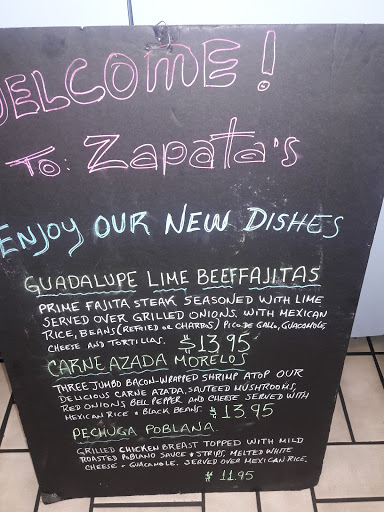 WELCOME!
TO: Zapata's
ENJOY OUR NEW DISHES
GUADALUPE LIME BEEFFAJITAS
PRIME FAJITA STEAK SEASONED WITH LIME
SERVED OVER GRILLED ONIONS. WITH MEXICAN
RICE, BEANS (REFRIED OR CHARROS) PICO DE GALLO, GUACAMOLE,
CHEESE AND TORTILLAS. $13.95
CARNE AZADA MORELOS
THREE JUMBO BACON-WRAPPED SHRIMP ATOP OUR
DELICIOUS CARNE AZADA. SAUTEED MUSHROOMS,
RED ONIONS, BELL PEPPER AND CHEESE SERVED WITH
MEXICAN RICE & BLACK BEANS. $13.95
PECHUGA POBLANA
GRILLED CHICKEN BREAST TOPPED WITH MILD
ROASTED POBLANO SAUCE & STRIPS, MELTED WHITE
CHEESE & GUACAMOLE. SERVED OVER MEXICAN RICE.
$11.95